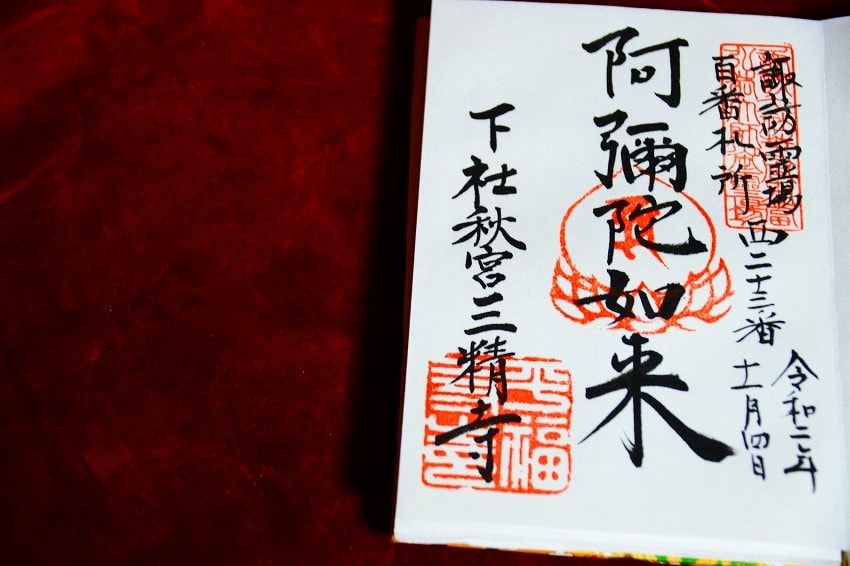 諏訪霊場
百番札所
西二十三番
令和二年
十一月四日
阿彌陀如来
下社秋宮三精寺
平福